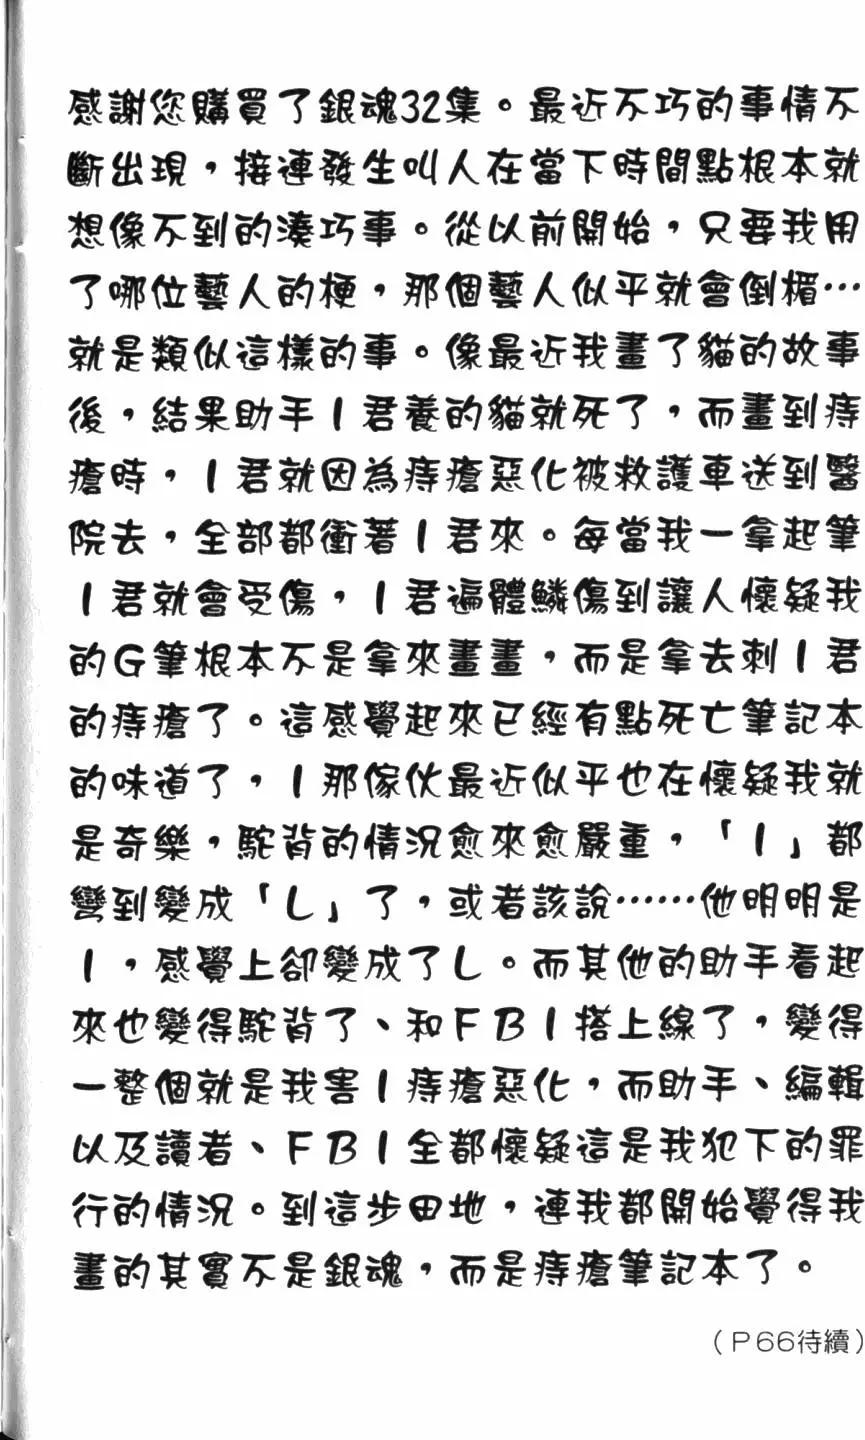 感謝您購買了銀魂32集。最近不巧的事情不
斷出現，接連發生叫人在當下時間點根本就
想像不到的湊巧事。從以前開始，只要我用
了哪位藝人的梗，那個藝人似乎就會倒楣…
就是類似這樣的事。像最近我畫了貓的故事
後，結果助手I君養的貓就死了，而畫到痔
瘡時，I君就因為痔瘡惡化被救護車送到醫
院去，全部都衝著I君來。每當我一拿起筆
I君就會受傷，I君遍體鱗傷到讓人懷疑我
的G筆根本不是拿來畫畫，而是拿去刺I君
的痔瘡了。這感覺起來已經有點死亡筆記本
的味道了，I那傢伙最近似乎也在懷疑我就
是奇樂，駝背的情況愈來愈嚴重，「I」都
彎到變成「L」了，或者該說……他明明是
I，感覺上卻變成了L。而其他的助手看起
來也變得駝背了、和FBI搭上線了，變得
一整個就是我害I痔瘡惡化，而助手、編輯
以及讀者、FBI全都懷疑這是我犯下的罪
行的情況。到這步田地，連我都開始覺得我
畫的其實不是銀魂，而是痔瘡筆記本了。
（P66待續）